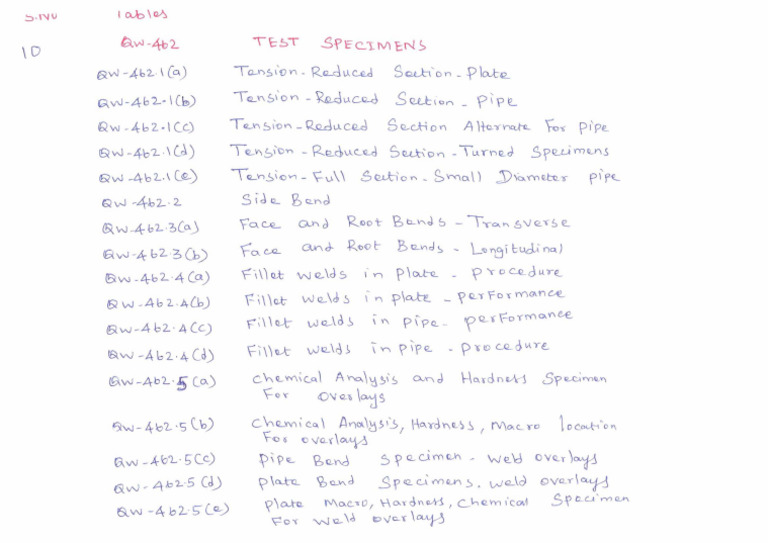 S.No Tables
10 QW-462 TEST SPECIMENS
QW-462.1(a) Tension-Reduced Section-Plate
QW-462.1(b) Tension-Reduced Section-Pipe
QW-462.1(c) Tension-Reduced Section Alternate For pipe
QW-462.1(d) Tension-Reduced Section-Turned Specimens
QW-462.1(e) Tension-Full Section-Small Diameter pipe
QW-462.2 Side Bend
QW-462.3(a) Face and Root Bends-Transverse
QW-462.3(b) Face and Root Bends-Longitudinal
QW-462.4(a) Fillet welds in plate-procedure
QW-462.4(b) Fillet welds in plate-performance
QW-462.4(c) Fillet welds in pipe-performance
QW-462.4(d) Fillet welds in pipe-procedure
QW-462.5(a) Chemical Analysis and Hardness Specimen
For overlays
QW-462.5(b) Chemical Analysis, Hardness, Macro location
For overlays
QW-462.5(c) Pipe Bend Specimen-weld overlays
QW-462.5(d) Plate Bend Specimens. weld overlays
QW-462.5(e) Plate Macro, Hardness, Chemical Specimen
For weld overlays